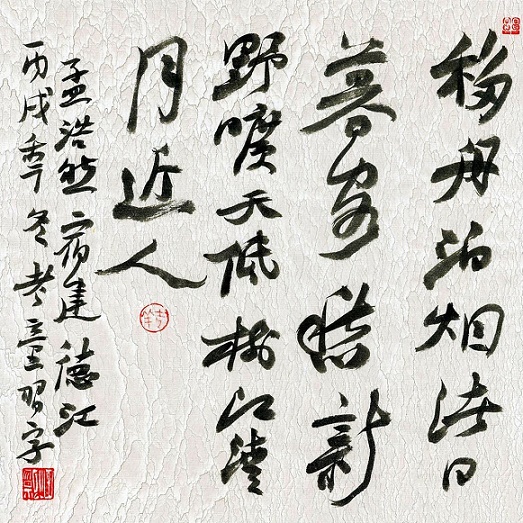 移舟泊烟渚日
暮客愁新
野曠天低樹江清
月近人
孟浩然宿建德江
丙戌季冬老童習字